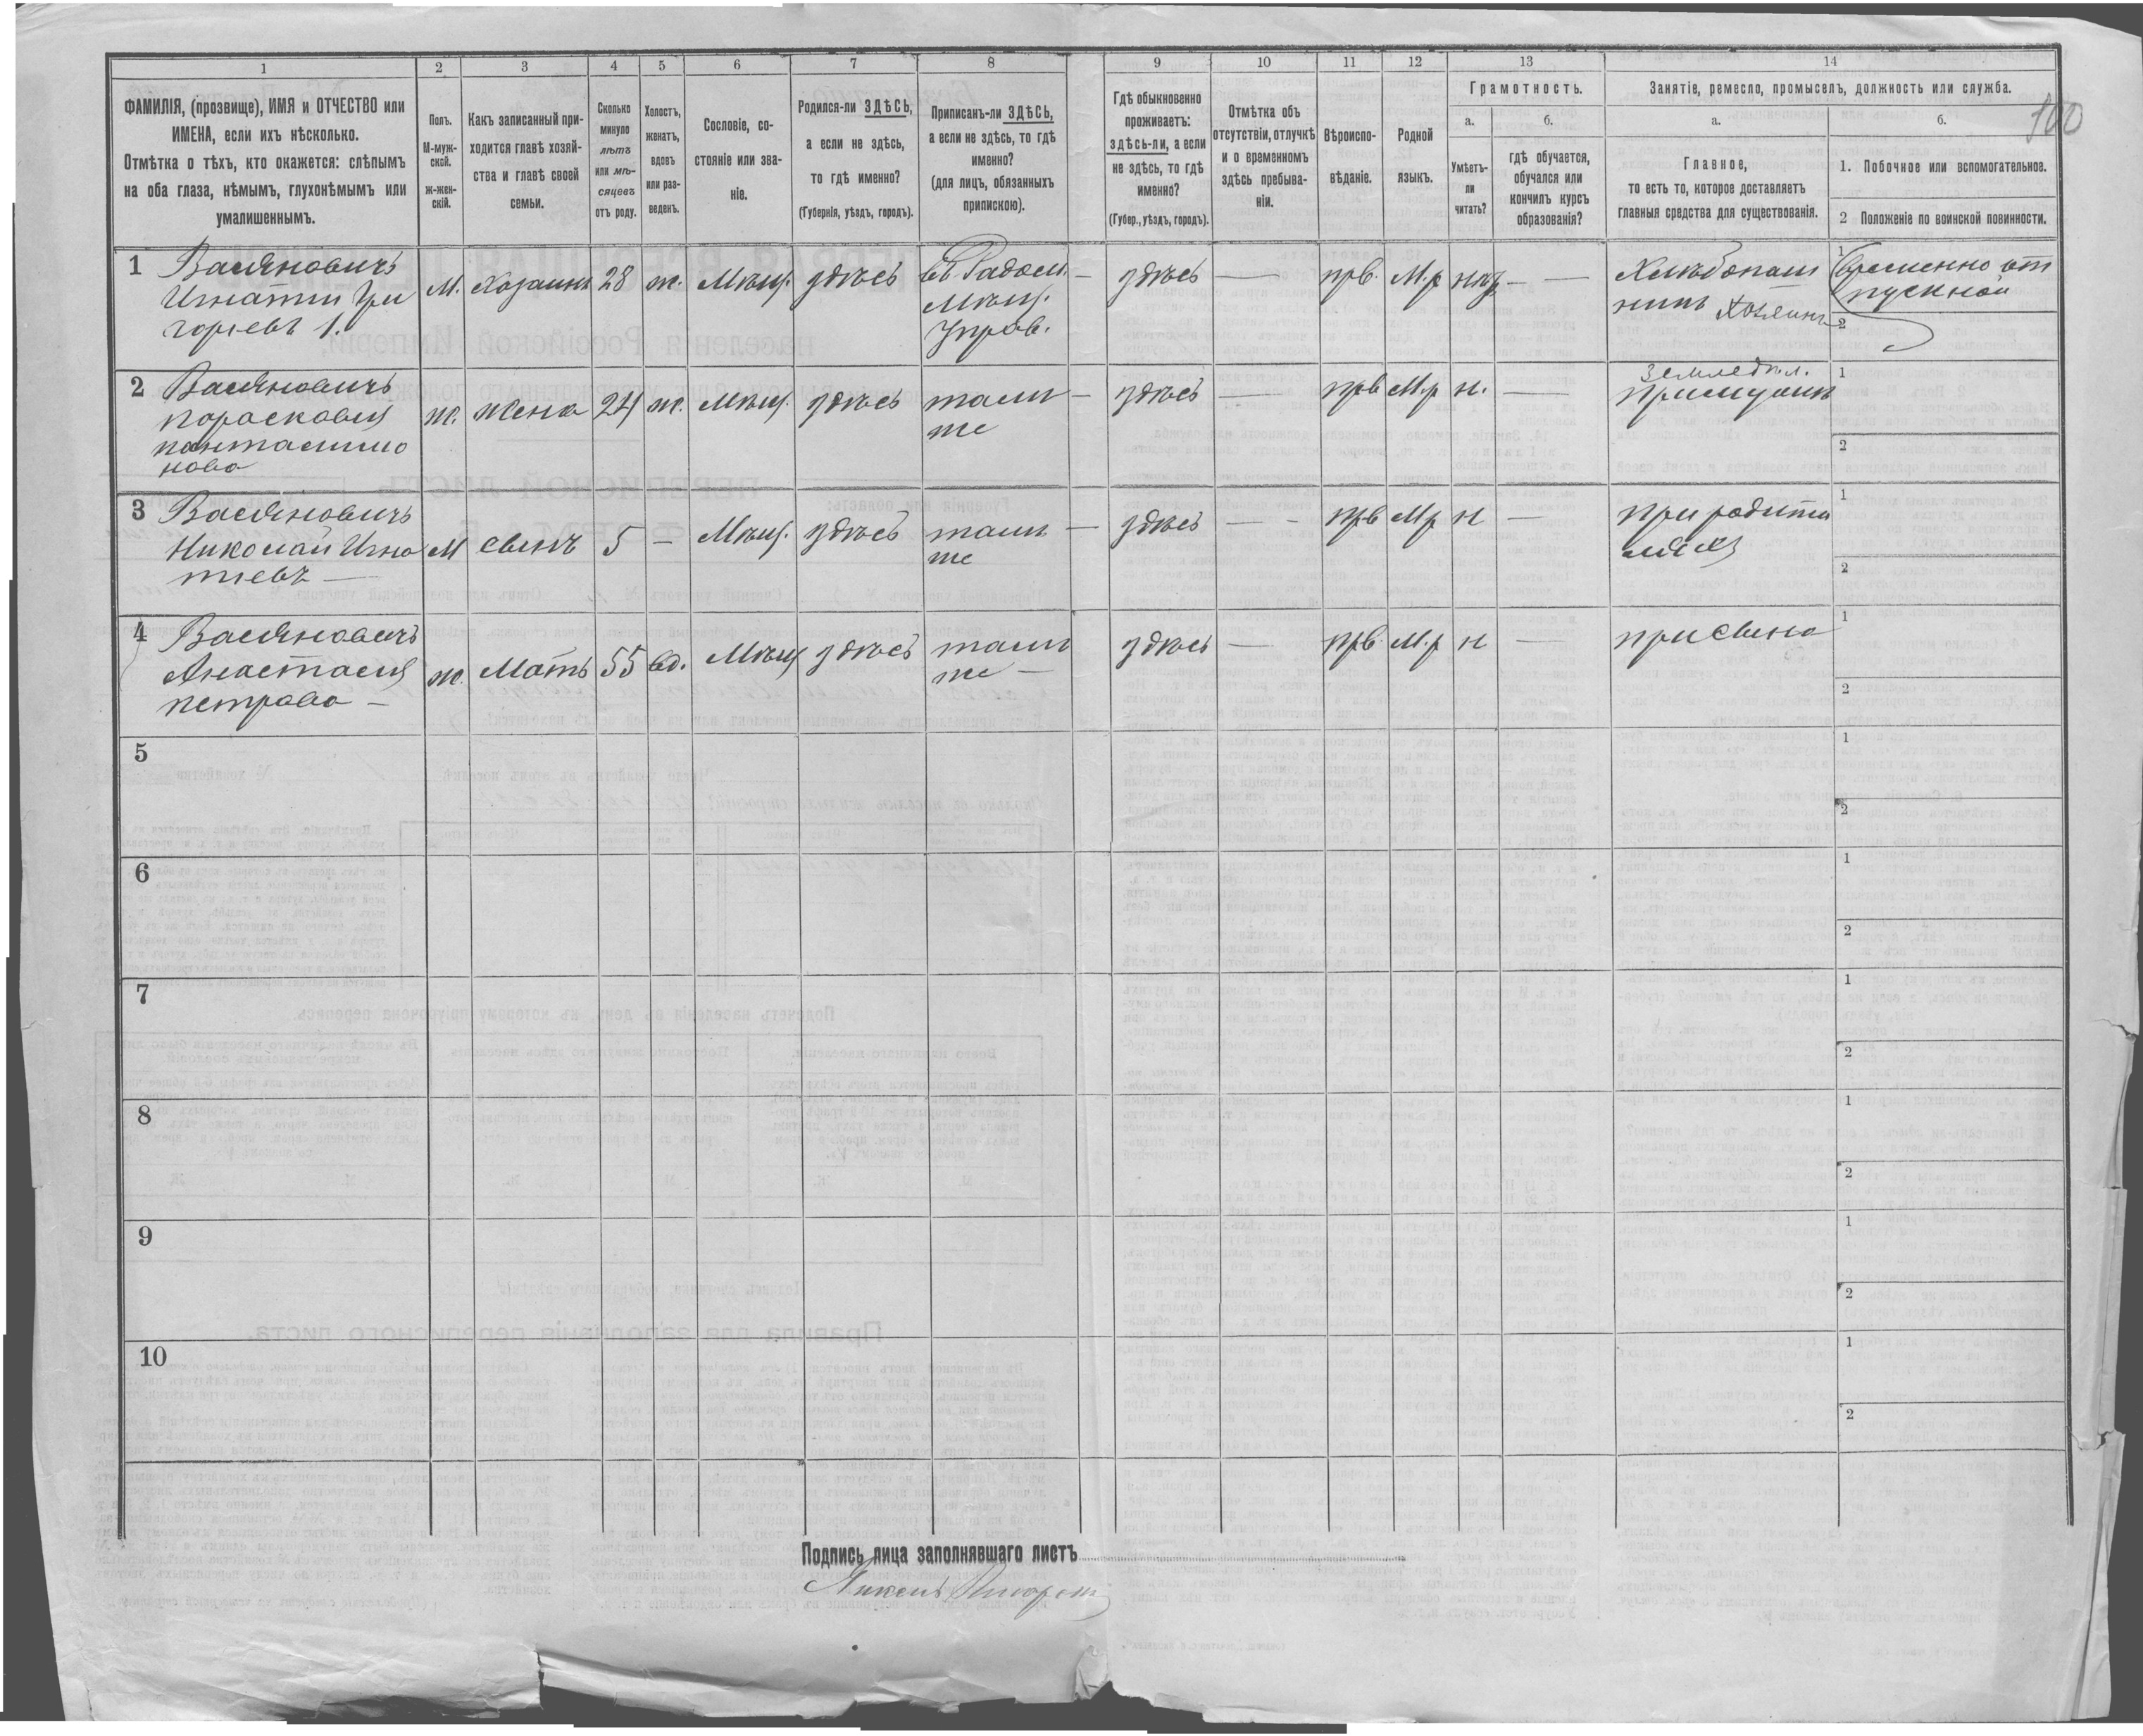 100
1 2 3 4 5 6 7 8 9 10 11 12 13 14
ФАМИЛІЯ, (прозвище), ИМЯ и ОТЧЕСТВО или
ИМЕНА, если ихъ нѣсколько.
Отмѣтка о тѣхъ, кто окажется: слѣпымъ
на оба глаза, нѣмымъ, глухонѣмымъ или
умалишеннымъ.
Полъ.
М-муж-
ской.
ж-жен-
скій.
Какъ записанный при-
ходится главѣ хозяй-
ства и главѣ своей
семьи.
Сколько
минуло
лѣтъ
или мѣ-
сяцевъ
отъ роду.
Холостъ,
женатъ,
вдовъ
или раз-
веденъ.
Сословіе, со-
стояніе или зва-
ніе.
Родился-ли ЗДѢСЬ,
а если не здѣсь,
то гдѣ именно?
(Губернія, уѣздъ, городъ).
Приписанъ-ли ЗДѢСЬ,
а если не здѣсь, то гдѣ
именно?
(для лицъ, обязанныхъ
припискою).
Гдѣ обыкновенно
проживаетъ:
здѣсь-ли, а если
не здѣсь, то гдѣ
именно?
(Губер., уѣздъ, городъ).
Отмѣтка объ
отсутствіи, отлучкѣ
и о временномъ
здѣсь пребыва-
ніи.
Вѣроиспо-
вѣданіе.
Родной
языкъ.
Грамотность.
а.
Умѣетъ-
ли
читать?
б.
гдѣ обучается,
обучался или
кончилъ курсъ
образованія?
Занятіе, ремесло, промыселъ, должность или служба.
а.
Главное,
то есть то, которое доставляетъ
главныя средства для существованія.
б.
1. Побочное или вспомогательное.
2 Положеніе по воинской повинности.
1 Васяновичъ
Игнатий Гри
горіевъ 1.
М. Хозаинъ 28 ж. Мѣщ. здѣсь
въ Радом.
Мѣщ.
Управ.
здѣсь — прв. М.р нѣт —
Хлѣбопаш
ник Хозяинъ
1 Временно от
пускной
2
2 Васяновичъ
Пораскавия
пантасимо
нова
ж. жена 24 ж. Мѣщ. здѣсь
тамъ
же
здѣсь — прв М.р н. —
Земледѣл.
примушъ
1
2
3 Васяновичъ
Николай Игна
тіевъ —
М сынъ 5 — Мѣщ. здѣсь
тамъ
же
здѣсь — прв М.р н —
при родите
ляхъ
1
2
4 Васяновичъ
Анастасия
петрова —
ж. Мать 55 вд. Мѣщ здѣсь
тамъ
же —
здѣсь — прв. М.р н —
при сына
1
2
5 1
2
6 1
2
7 1
2
8 1
2
9 1
2
10 1
2
Подпись лица заполнявшаго листъ